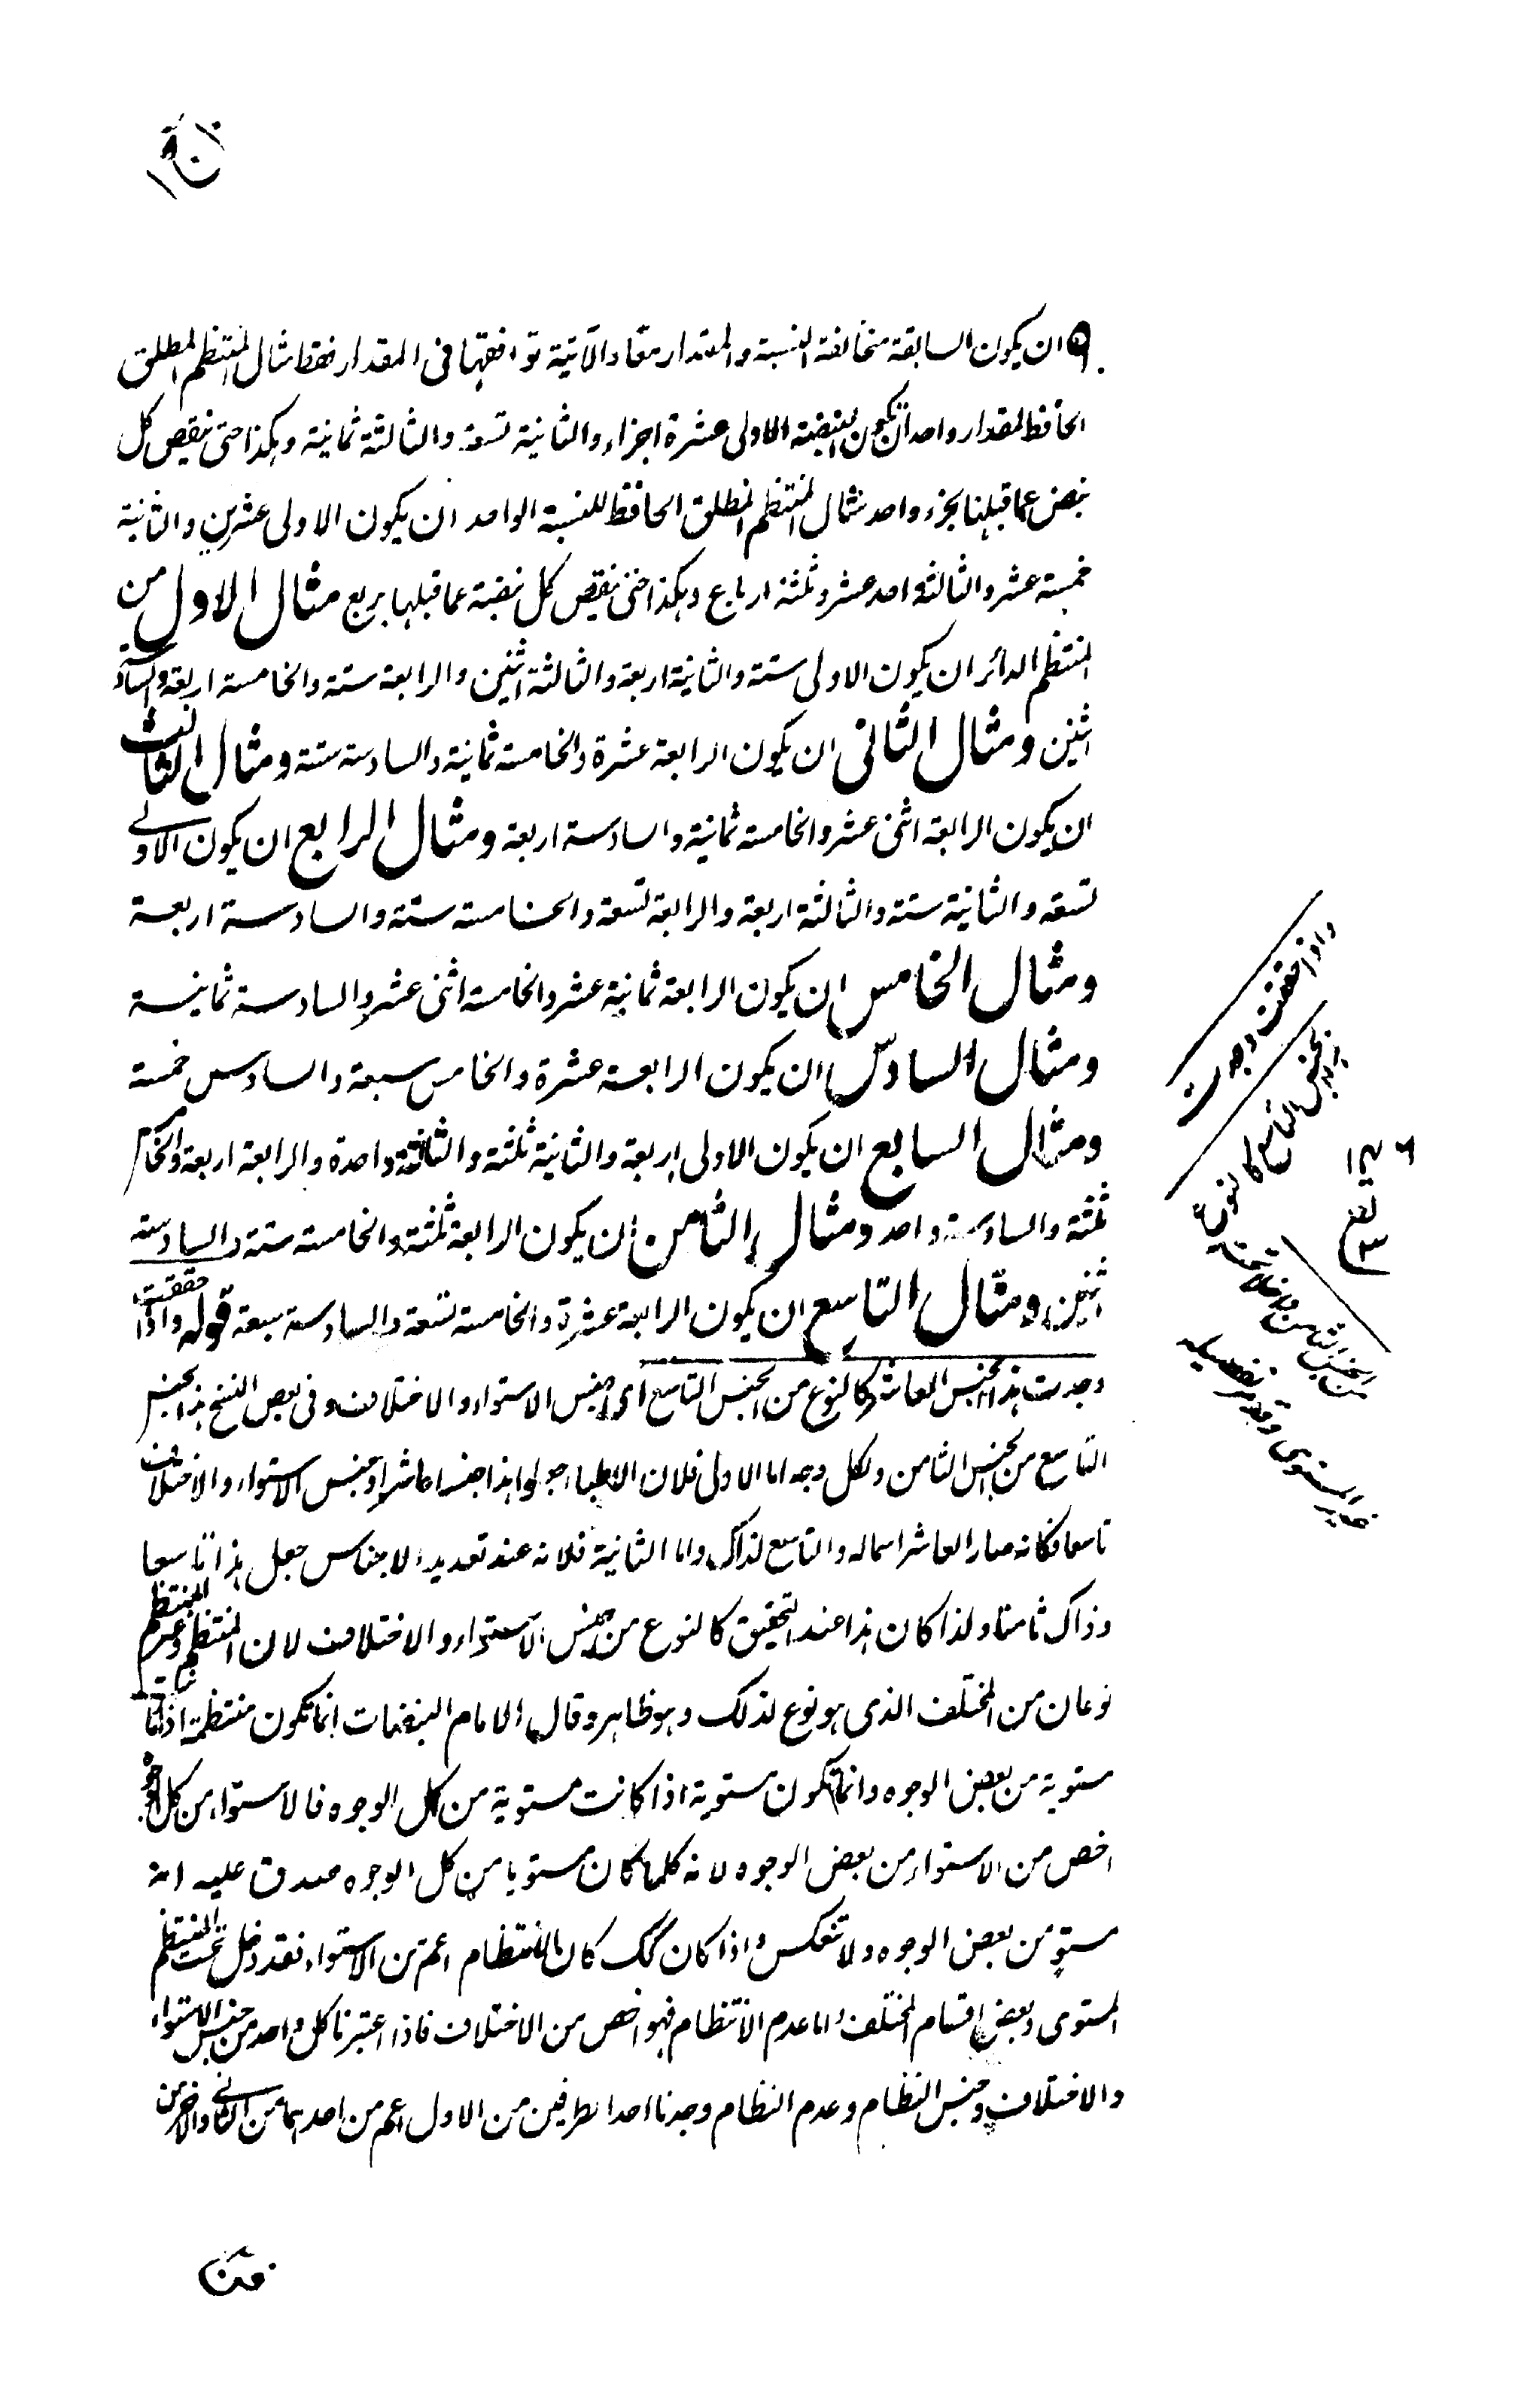 ٩ ان يكون السابقة مخالفة النسبة والمقدار معًا والآتية توافقها فى المقدار فقط مثال المنتظم المطلق
الحافظ لمقدار واحد ان يكون النبضة الاولى عشرة اجزاء والثانية تسعة والثالثة ثمانية وهكذا حتى ينقص كل
نبض عما قبلها بجزء واحد مثال المنتظم المطلق الحافظ للنسبة الواحد ان يكون الاولى عشرين والثانية
خمسة عشر والثالثة احد عشر وثلثة ارباع وهكذا حتى ينقص كل نبضة عما قبلها بربع مثال الاول من
المنتظم الدائر ان يكون الاولى ستة والثانية اربعة والثالثة اثنين والرابعة ستة والخامسة اربعة والسادسة
اثنين ومثال الثانى ان يكون الرابعة عشرة والخامسة ثمانية والسادسة ستة ومثال الثالث
ان يكون الرابعة اثنى عشر والخامسة ثمانية والسادسة اربعة ومثال الرابع ان يكون الاولى
تسعة والثانية ستة والثالثة اربعة والرابعة تسعة والخامسة ستة والسادسة اربعة
ومثال الخامس ان يكون الرابعة ثمانية عشر والخامسة اثنى عشر والسادسة ثمانية
ومثال السادس ان يكون الرابعة عشرة والخامس سبعة والسادس خمسة
ومثال السابع ان يكون الاولى اربعة والثانية ثلثة والثالثة واحدة والرابعة اربعة والخامسة
ثلثة والسادسة واحد ومثال الثامن ان يكون الرابعة ثلثة والخامسة ستة والسادسة
اثنين ومثال التاسع ان يكون الرابعة عشرة والخامسة تسعة والسادسة سبعة قوله واذا حققت
وجدت هذا الجنس العاشر كالنوع من الجنس التاسع اى جنس الاستواء والاختلاف وفى بعض النسخ هذا الجنس
التاسع من الجنس الثامن ولكل وجه اما الاولى فلان الاطباء جعلوا هذا جنسا عاشرا وجنس الاستواء والاختلاف
تاسعا فكانه صار العاشر اسما له والتاسع لذاك واما الثانية فلانه عند تعديد الاجناس جعل هذا تاسعا
وذاك ثامنا ولذا كان هذا عند التحقيق كالنوع من جنس الاستواء والاختلاف لان المنتظم وغير المنتظم
نوعان من المختلف الذى هو نوع لذلك وهو ظاهر وقال الامام النبضات انما تكون منتظمة اذا كانت
مستوية من بعض الوجوه وانما تكون مستوية اذا كانت مستوية من كل الوجوه فالاستواء من كل الوجوه
اخص من الاستواء من بعض الوجوه لانه كلما كان مستويا من كل الوجوه صدق عليه انه
مستو من بعض الوجوه ولا تنعكس واذا كان كك كان الانتظام اعم من الاستواء فقد دخل تحت المنتظم
المستوى وبعض اقسام المختلف واما عدم الانتظام فهو اخص من الاختلاف فاذا اعتبرنا كل واحد من جنس الاستواء
والاختلاف وجنس النظام وعدم النظام وجدنا احد الطرفين من الاول اعم من احدهما من الثانى والاخر من
واذا حققت وجدت